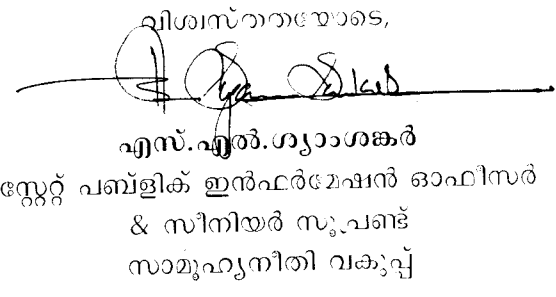 വിശ്വസ്തതയോടെ,
എസ്.എൽ.ശ്യാംശങ്കർ
സ്റ്റേറ്റ് പബ്ളിക് ഇൻഫർമേഷൻ ഓഫീസർ
& സീനിയർ സൂപ്രണ്ട്
സാമൂഹ്യനീതി വകുപ്പ്